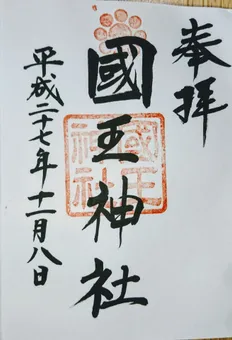 奉拝
國王神社
國王神社
平成二十七年十一月八日